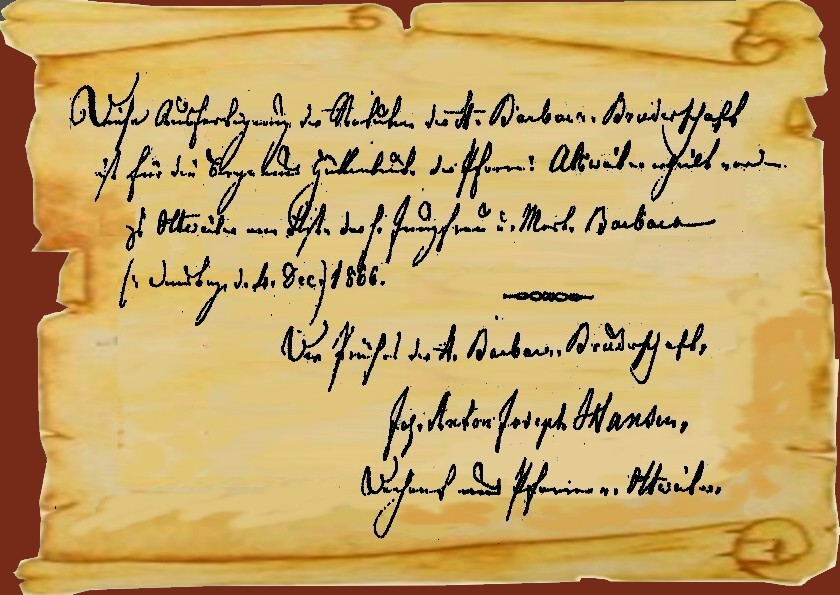 Diese Ausfertigung der Statuten der St. Barbara-Bruderschaft
ist für die Berg- und Hüttenleute der Pfarrei Ottweiler erstellt worden
zu Ottweiler am Feste der h. Jungfrau u. Mart. Barbara
(: Samstag, d. 4. Dec.) 1886.
Der Präses der St. Barbara-Bruderschaft,
Joh. Anton Joseph Hansen,
Dechant und Pfarrer v. Ottweiler.